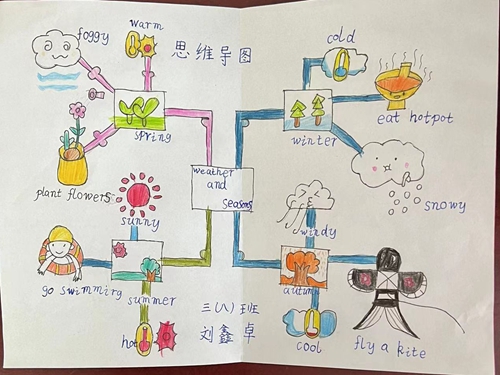 foggy
warm
思维导图
cold
spring
winter
eat hotpot
plant flowers
weather
and
seasons
snowy
sunny
windy
go swimming
summer
autumn
三(八)班
刘鑫卓
hot
cool
fly a kite